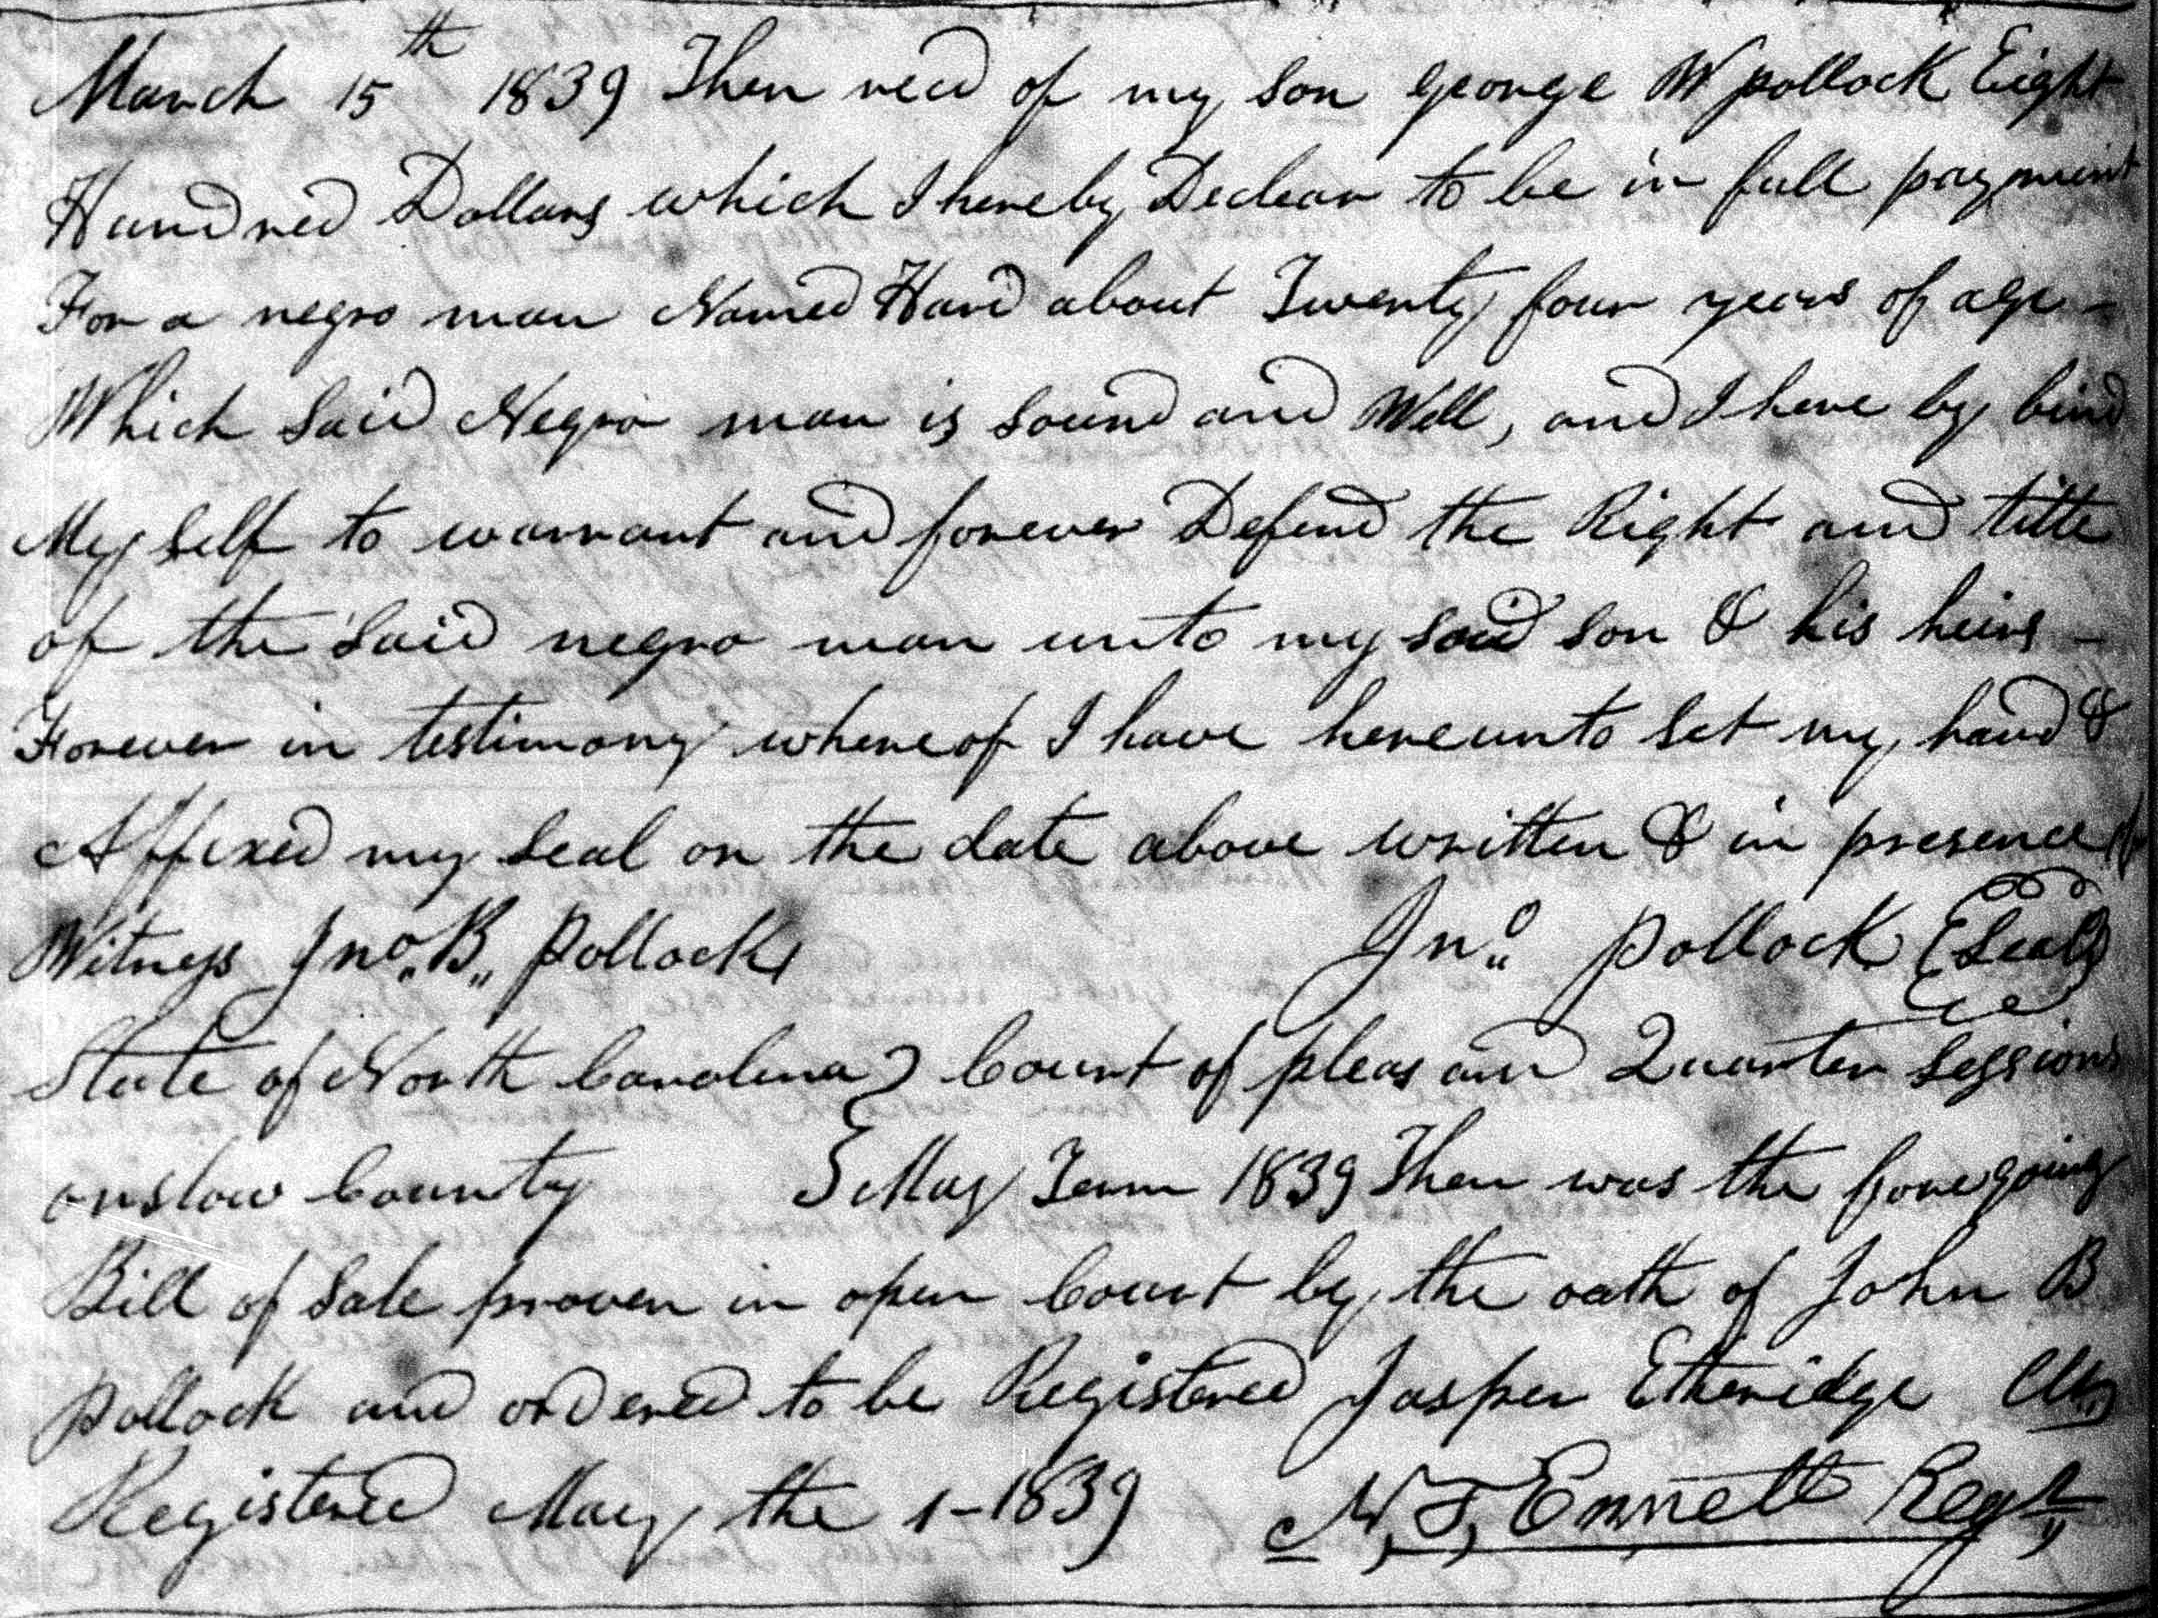 March 15th 1839 Then recd of my son george W pollock Eight
Hundred Dollars which I hereby Declear to be in full payment
For a negro man Named Hard about Twenty four years of age -
Which said Negro man is sound and Well, and I here by bind
My self to warrant and forever Defend the Right and title
of the said negro man unto my said son & his heirs -
Forever in testimony whereof I have hereunto set my hand &
Affixed my seal on the date above written & in presence of
Witness Jno. B. pollock Jno. pollock (Seal)
State of North Carolina } Court of pleas and Quarter Sessions
onslow County } May Term 1839 Then was the foregoing
Bill of sale proven in open Court by the oath of John B
pollock and ordered to be Registered Jasper Etheridge Clk
Registered May the 1-1839 N, T, Ennett Regt,